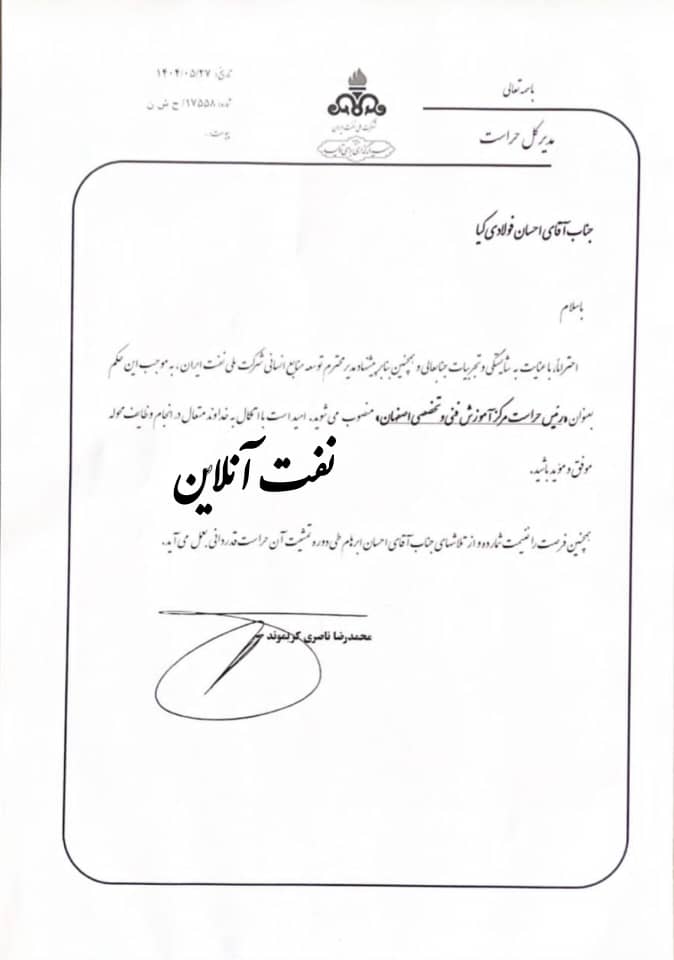 باسمه تعالی
مدیر کل حراست
شرکت ملی نفت ایران
تاریخ: ۱۴۰۴/۰۵/۲۷
شماره: ۱۷۵۵۸/ح ش ن
پیوست:
جناب آقای احسان فولادی کیا
باسلام
احتراماً، با عنایت به شایستگی و تجربیات جنابعالی و همچنین بنابر پیشنهاد مدیر محترم توسعه منابع انسانی شرکت ملی نفت ایران، به موجب این حکم
بعنوان «رئیس حراست مرکز آموزش فنی و تخصصی اصفهان» منصوب می شوید. امید است با اتکال به خداوند متعال در انجام وظایف محوله
موفق و موید باشید.
نفت آنلاین
همچنین فرصت را غنیمت شمارده و از تلاشهای جناب آقای احسان ابرهام طی دوره تمشیت آن حراست قدردانی بعمل می آید.
محمدرضا ناصری کریموند